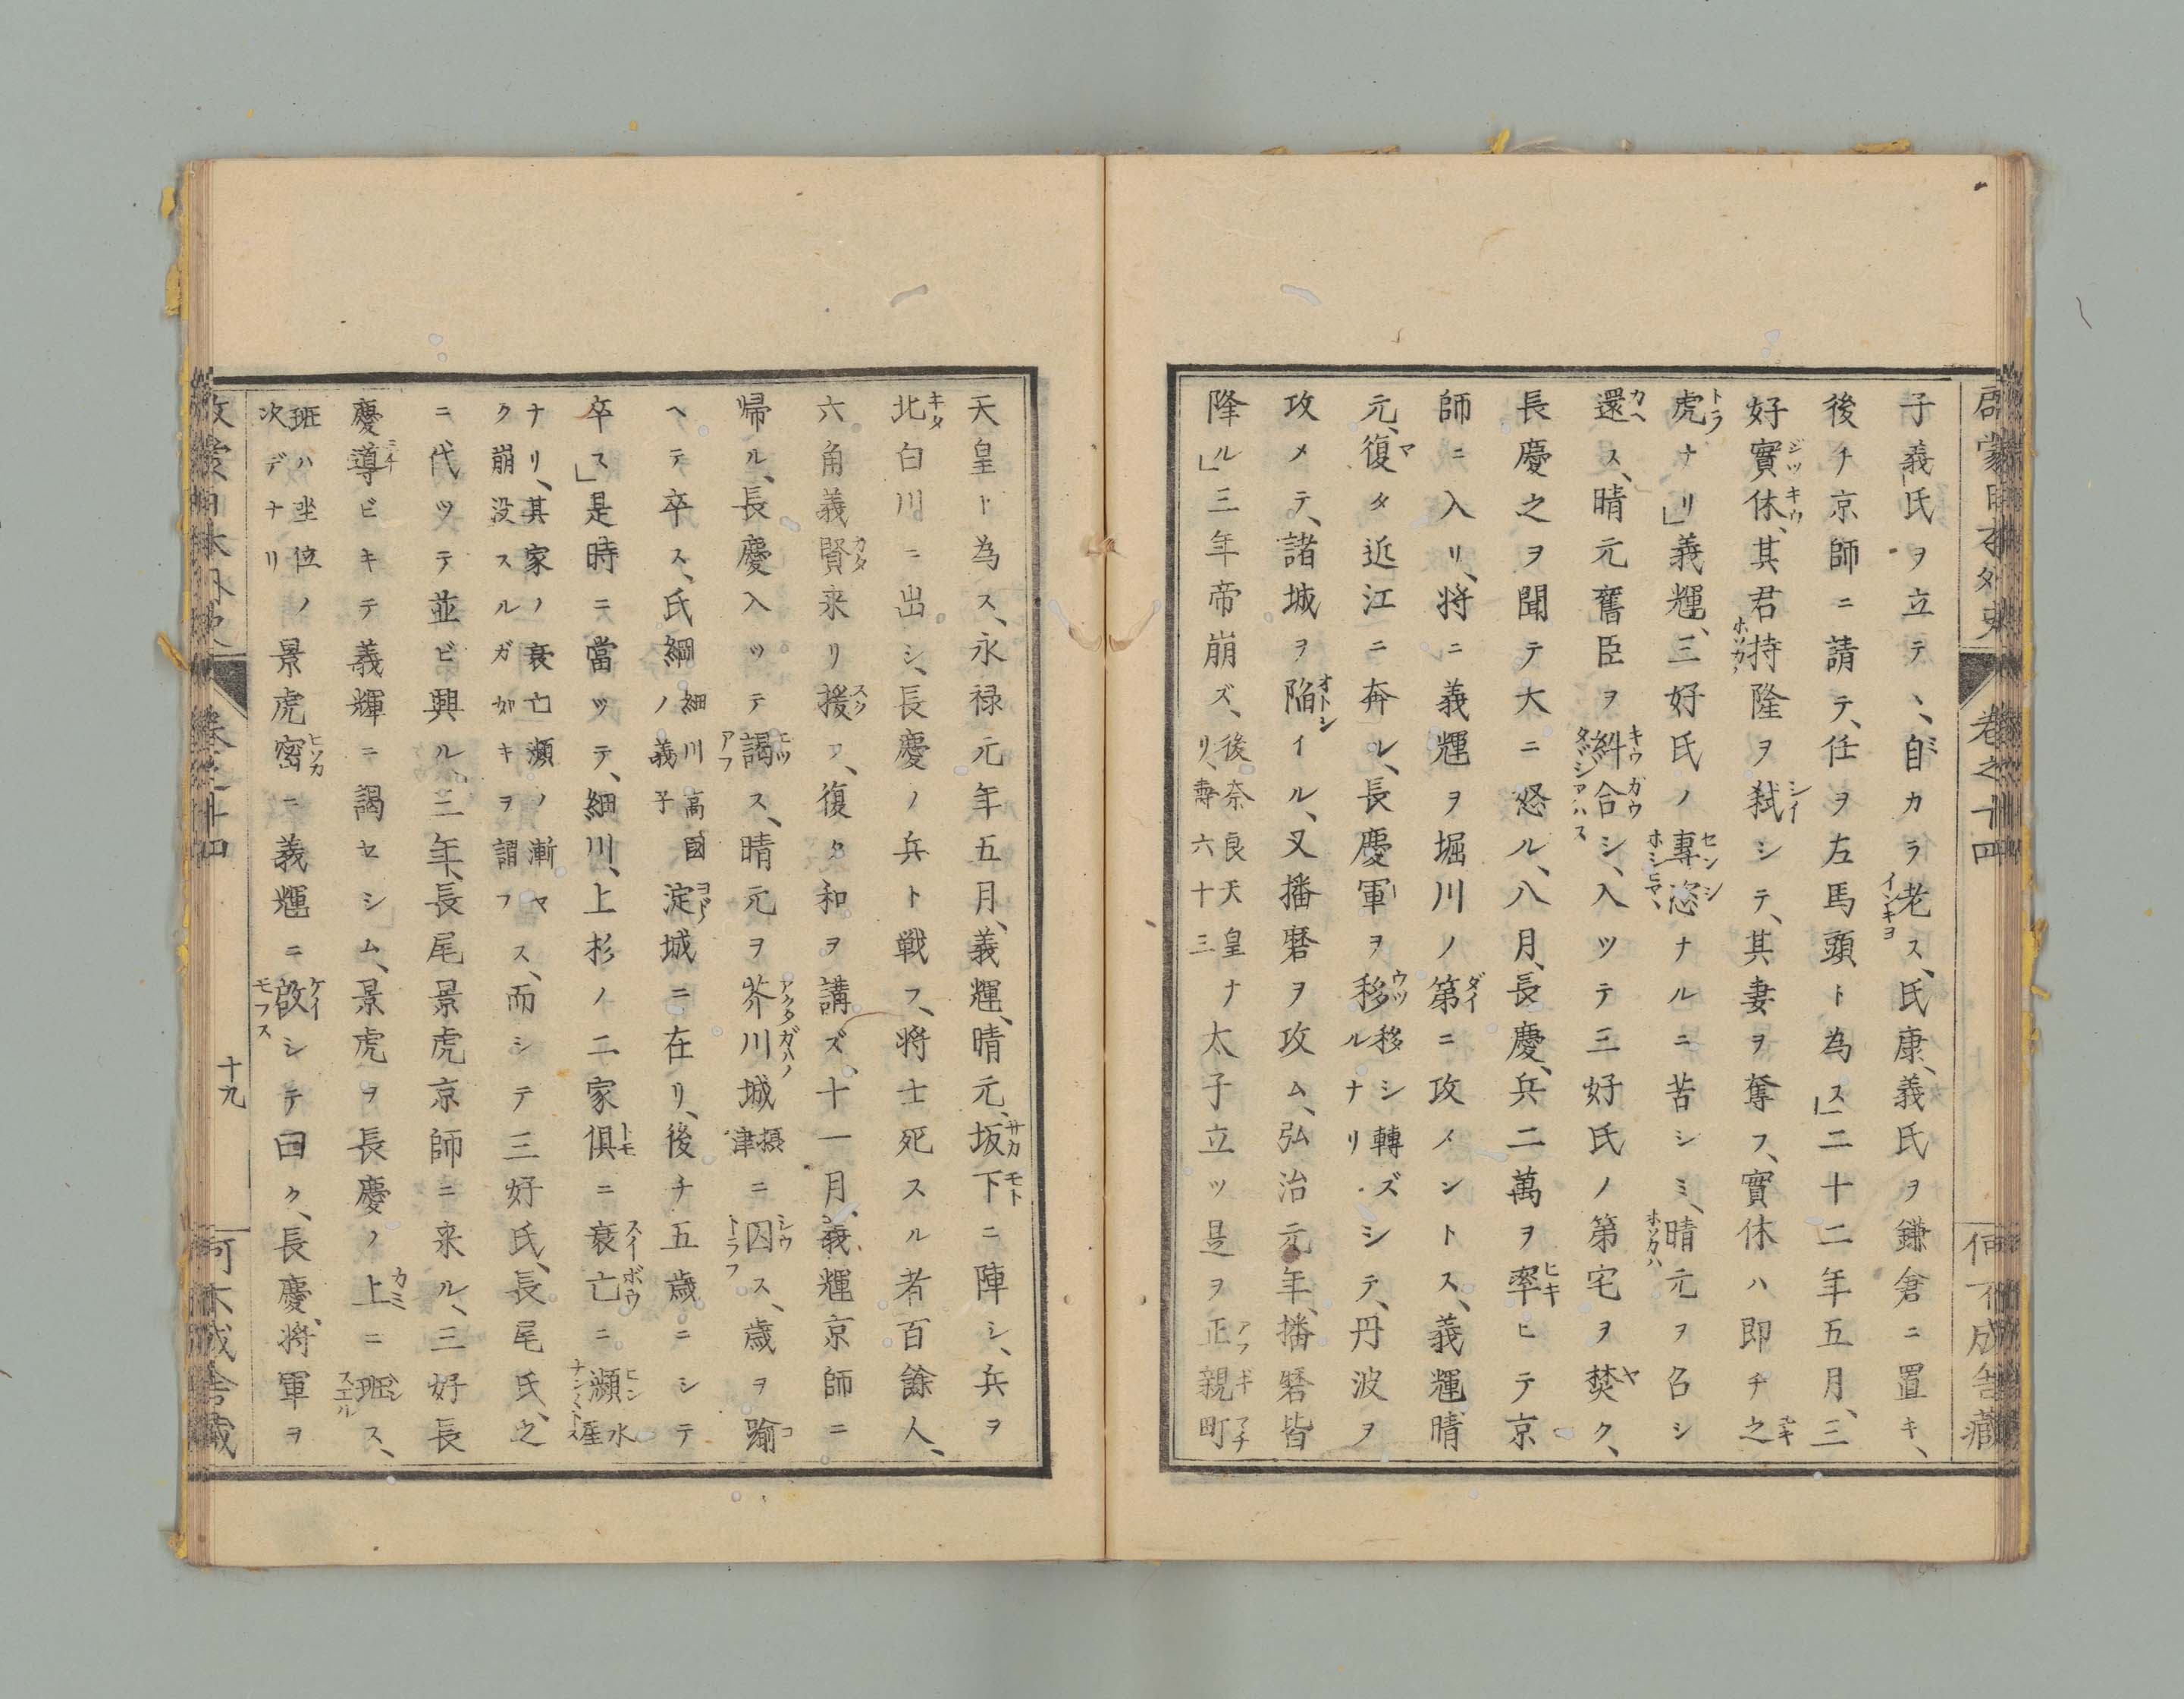 子義氏ヲ立テヽ、自カラ老ス、氏康、義氏ヲ鎌倉ニ置キ、
後チ京師ニ請テ、任ヲ左馬頭ト為ス」二十二年五月、三
好實休、其君持隆ヲ弑シテ、其妻ヲ奪フ、實休ハ即チ之
虎ナリ」義輝、三好氏ノ專恣ナルニ苦シミ、晴元ヲ召シ
還ス、晴元舊臣ヲ糾合シ、入ツテ三好氏ノ第宅ヲ焚ク、
長慶之ヲ聞テ大ニ怒ル、八月、長慶、兵二萬ヲ率ヒテ京
師ニ入リ、將ニ義輝ヲ堀川ノ第ニ攻メントス、義輝晴
元、復タ近江ニ奔ル、長慶軍ヲ移移シ轉ズルナリシテ、丹波ヲ
攻メテ、諸城ヲ陥イル、又播磨ヲ攻ム、弘治元年、播磨皆
降ル」三年帝崩ズ、後奈良天皇ナリ、壽六十三太子立ツ是ヲ正親町
天皇ト為ス、永禄元年五月、義輝、晴元、坂下ニ陣シ、兵ヲ
北白川ニ出シ、長慶ノ兵ト戦フ、將士死スル者百餘人、
六角義賢来リ援フ、復タ和ヲ講ズ、十一月、義輝京師ニ
帰ル、長慶入ツテ謁ス、晴元ヲ芥川城摂津ニ囚ス、歳ヲ踰
ヘテ卒ス、氏綱細川高國ノ義子、淀城ニ在リ、後チ五歳ニシテ
卒ス」是時ニ當ツテ、細川、上杉ノ二家俱ニ衰亡ニ瀕水厓
ナリ、其家ノ衰亡瀕ノ漸ヤク崩没スルガ如キヲ謂フス、而シテ三好氏、長尾氏、之
ニ代ツテ並ビ興ル、三年、長尾景虎京師ニ来ル、三好長
慶導ビキテ義輝ニ謁セシム、景虎ヲ長慶ノ上ニ班ス、
班ハ坐位ノ次デナリ景虎密ニ義輝ニ啟シテ曰ク、長慶、將軍ヲ
卷之十四
十九